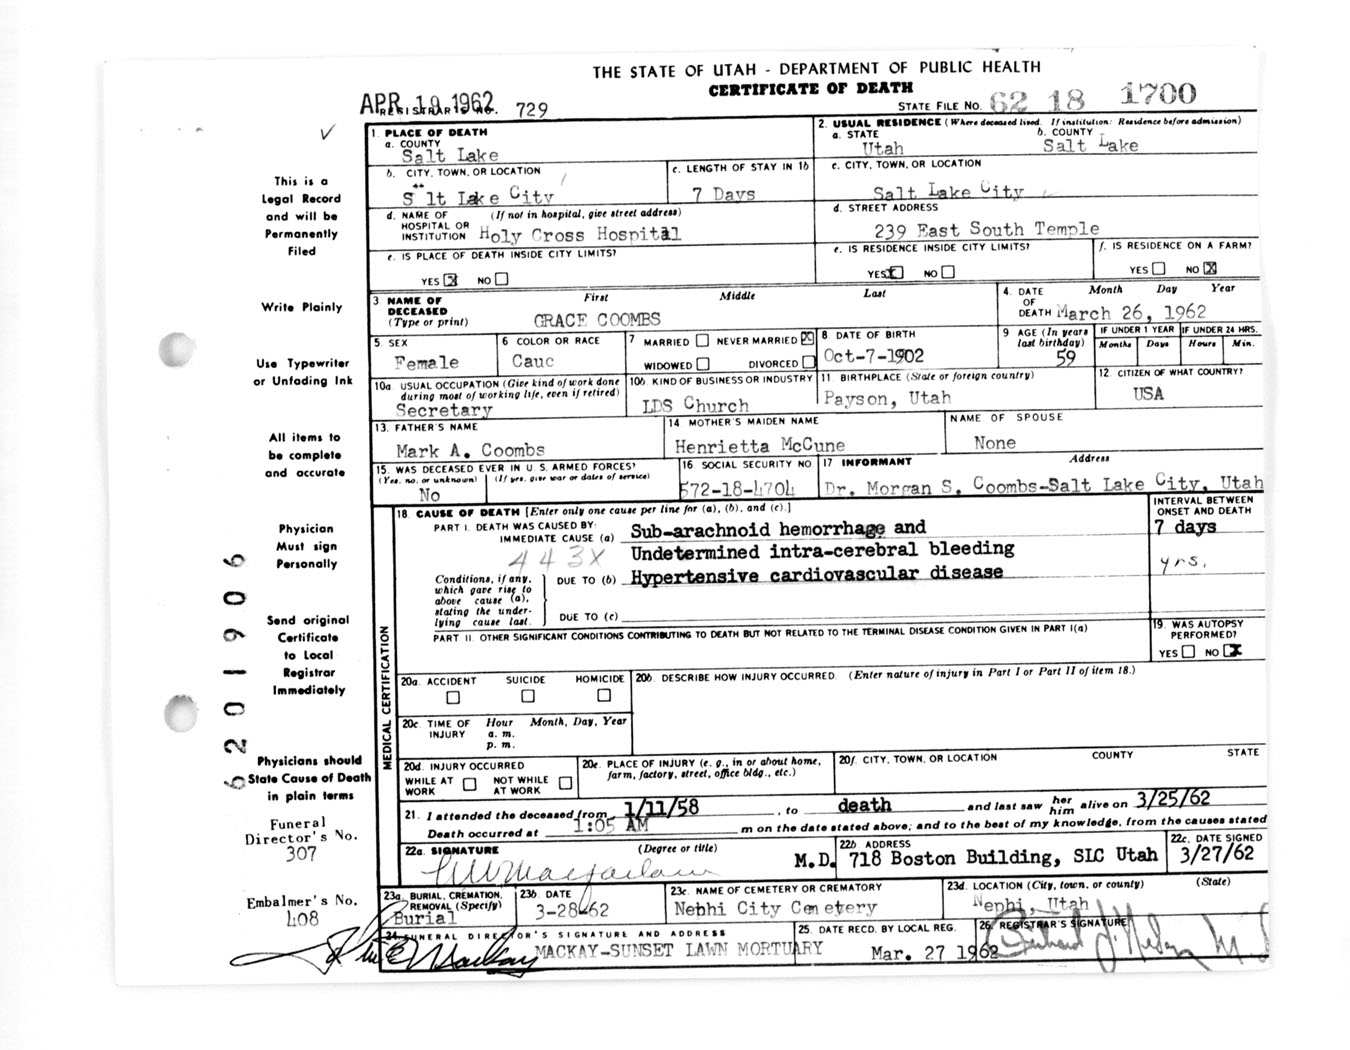 THE STATE OF UTAH - DEPARTMENT OF PUBLIC HEALTH
CERTIFICATE OF DEATH
APR 19 1962
REGISTRAR'S NO. 729
STATE FILE NO. 62 18 1700
This is a
Legal Record
and will be
Permanently
Filed
Write Plainly
Use Typewriter
or Unfading Ink
All items to
be complete
and accurate
Physician
Must sign
Personally
Send original
Certificate
to Local
Registrar
Immediately
Physicians should
State Cause of Death
in plain terms
Funeral
Director's No.
307
Embalmer's No.
408
6201906
1. PLACE OF DEATH
a. COUNTY
Salt Lake
2. USUAL RESIDENCE (Where deceased lived. If institution: Residence before admission)
a. STATE b. COUNTY
Utah Salt Lake
b. CITY, TOWN, OR LOCATION
S lt Lake City
c. LENGTH OF STAY IN 1b
7 Days
c. CITY, TOWN, OR LOCATION
Salt Lake City
d. NAME OF (If not in hospital, give street address)
HOSPITAL OR
INSTITUTION Holy Cross Hospital
d. STREET ADDRESS
239 East South Temple
e. IS PLACE OF DEATH INSIDE CITY LIMITS?
YES X NO
e. IS RESIDENCE INSIDE CITY LIMITS?
YES X NO
f. IS RESIDENCE ON A FARM?
YES NO X
3 NAME OF First Middle Last
DECEASED
(Type or print) GRACE COOMBS
4. DATE Month Day Year
OF
DEATH March 26, 1962
5 SEX
Female
6 COLOR OR RACE
Cauc
7 MARRIED NEVER MARRIED X
WIDOWED DIVORCED
8 DATE OF BIRTH
Oct-7-1902
9 AGE (In years
last birthday)
59
IF UNDER 1 YEAR IF UNDER 24 HRS.
Months Days Hours Min.
10a USUAL OCCUPATION (Give kind of work done
during most of working life, even if retired)
Secretary
10b. KIND OF BUSINESS OR INDUSTRY
LDS Church
11 BIRTHPLACE (State or foreign country)
Payson, Utah
12 CITIZEN OF WHAT COUNTRY?
USA
13. FATHER'S NAME
Mark A. Coombs
14 MOTHER'S MAIDEN NAME
Henrietta McCune
NAME OF SPOUSE
None
15. WAS DECEASED EVER IN U. S. ARMED FORCES?
(Yes, no, or unknown) (If yes, give war or dates of service)
No
16 SOCIAL SECURITY NO
572-18-4704
17 INFORMANT Address
Dr. Morgan S. Coombs-Salt Lake City, Utah
MEDICAL CERTIFICATION
18 CAUSE OF DEATH [Enter only one cause per line for (a), (b), and (c).]
INTERVAL BETWEEN
ONSET AND DEATH
PART I. DEATH WAS CAUSED BY:
IMMEDIATE CAUSE (a) Sub-arachnoid hemorrhage and 7 days
443X Undetermined intra-cerebral bleeding yrs.
Conditions, if any,
which gave rise to
above cause (a),
stating the under-
lying cause last.
DUE TO (b) Hypertensive cardiovascular disease
DUE TO (c)
PART II. OTHER SIGNIFICANT CONDITIONS CONTRIBUTING TO DEATH BUT NOT RELATED TO THE TERMINAL DISEASE CONDITION GIVEN IN PART I(a)
19. WAS AUTOPSY
PERFORMED?
YES NO X
20a. ACCIDENT SUICIDE HOMICIDE
20b. DESCRIBE HOW INJURY OCCURRED. (Enter nature of injury in Part I or Part II of item 18.)
20c. TIME OF Hour Month, Day, Year
INJURY a. m.
p. m.
20d. INJURY OCCURRED
WHILE AT WORK NOT WHILE AT WORK
20e. PLACE OF INJURY (e. g., in or about home,
farm, factory, street, office bldg., etc.)
20f. CITY, TOWN, OR LOCATION COUNTY STATE
21. I attended the deceased from 1/11/58, to death and last saw her him alive on 3/25/62
Death occurred at 1:05 AM m on the date stated above; and to the best of my knowledge, from the causes stated
22a. SIGNATURE (Degree or title)
M.D.
22b. ADDRESS
718 Boston Building, SLC Utah
22c. DATE SIGNED
3/27/62
23a. BURIAL, CREMATION,
REMOVAL (Specify)
Burial
23b. DATE
3-28-62
23c. NAME OF CEMETERY OR CREMATORY
Nephi City Cemetery
23d. LOCATION (City, town, or county) (State)
Nephi, Utah
24. FUNERAL DIRECTOR'S SIGNATURE AND ADDRESS
MACKAY-SUNSET LAWN MORTUARY
25. DATE RECD. BY LOCAL REG.
Mar. 27 1962
26. REGISTRAR'S SIGNATURE